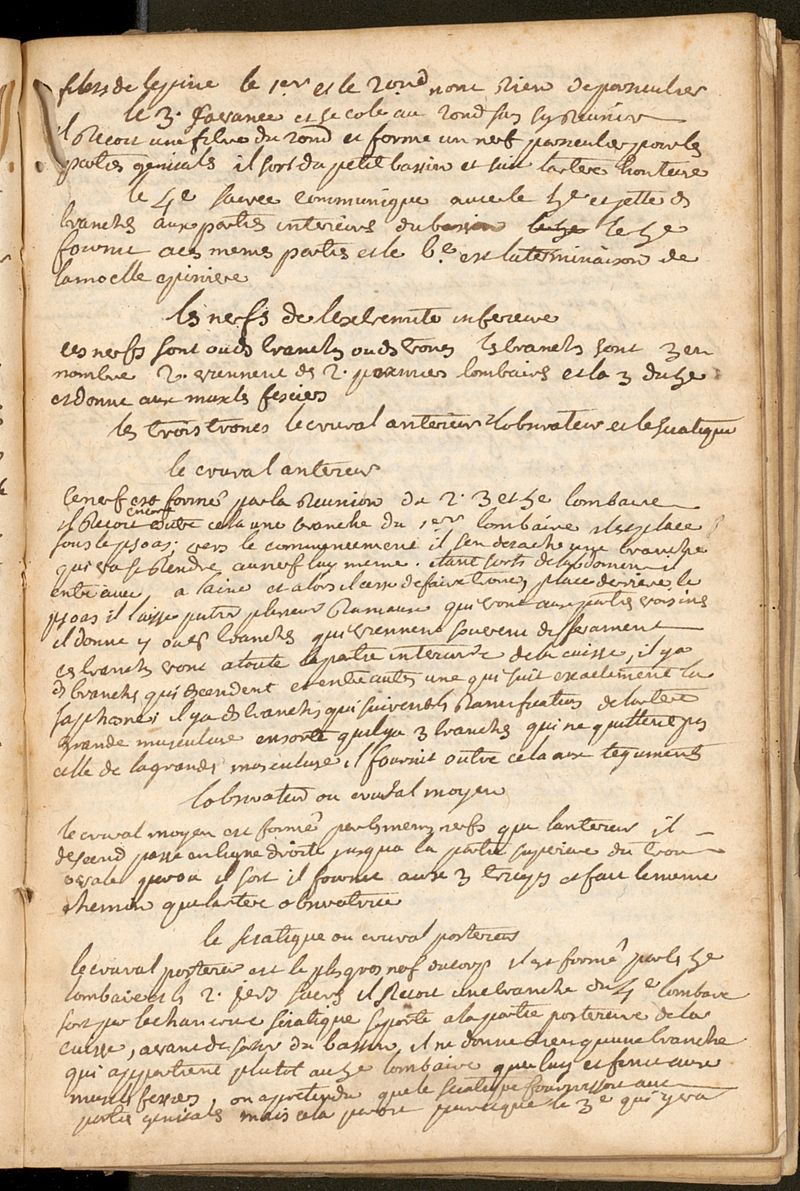 filets de lepine le 1er et le 2ond nont Rien de particulier
le 3e savance et se cole au 2ond sans sy Reunir
il Recoit une filere du 2ond et forme un nerf particulier pour les
parties genitals il sort du petit bassin et suit lartere honteuse
le 4e sacree communique avec le 5e et jette des
branches aux parties interieurs du bassin le 5e
fournit a ces memes parties et le 6e est la terminaison de
la moelle epiniere
les nerfs de lextremite inferieure
ces nerfs sont ou des branches ou des troncs les branches sont 3 en
nombre 2 viennent des 2 premiers lombaires et la 3 du 5e
et donne aux muscles fessiers
les trois troncs le crural anterieur lobturateur et le sciatique
le crural anterieur
ce nerf est formé par la Reunion du 2. 3 et 5e lombaire
il Recoit encore outre cela une branche du 1er lombaire il est place
sous le psoas; vers le commencement il sen detache une branche
qui va se Rendre au nerf luy meme. etant sorti de labdomen il
entre avec, a laine et alors il cesse de faire tronc, place derriere le
psoas il laisse plusieur Rameaux qui vont aux parties voisines
il donne 7 ou 8 branches qui viennent souvent differament
ces branches vont a toute la partie interieure de la cuisse, il y a
des branches qui descendent et entre autres une qui suit exactement la
saphene; il y a des branches qui suivent les Ramifications de lartere
grande musculaire en sorte quil y a 3 branches qui ne quittent pas
celle de la grande musculaire, il fournit outre cela aux teguments
lobturateur ou crural moyen
le crural moyen est formé par les memes nerfs que lanterieur il
descend passe en ligne droite jusqua la partie superieure du trou
ovale par ou il sort il fournit aux 3 triceps et fait le meme
chemin que lartere obturatrice
le sciatique ou crural posterieur
le crural posterieur est le plus gros nerf du corps il est formé par le 5e
lombaire et les 2. 1ers sacrés il Recoit une branche du 4e lombaire
sort par lechancrure sciatique se porte a la partie posterieure de la
cuisse, avant de sortir du bassin, il ne donne rien quune branche
qui appartient plutot au 5e lombaire que luy et fournit aux
muscles fessiers, on a pretendu que le sciatique fournissoit aux
parties genitals mais cela paroit parceque le 3e qui y va